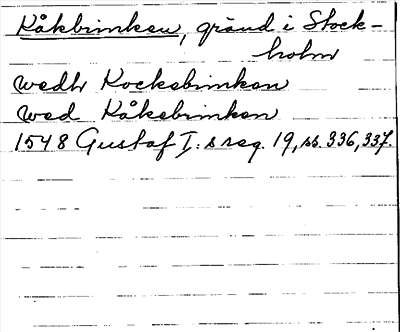 Kåkbrinken, gränd i Stock-
holm
wedh Kockabrinken
wed Kåkabrinken
1548 Gustaf I:s reg. 19, ss. 336, 337.